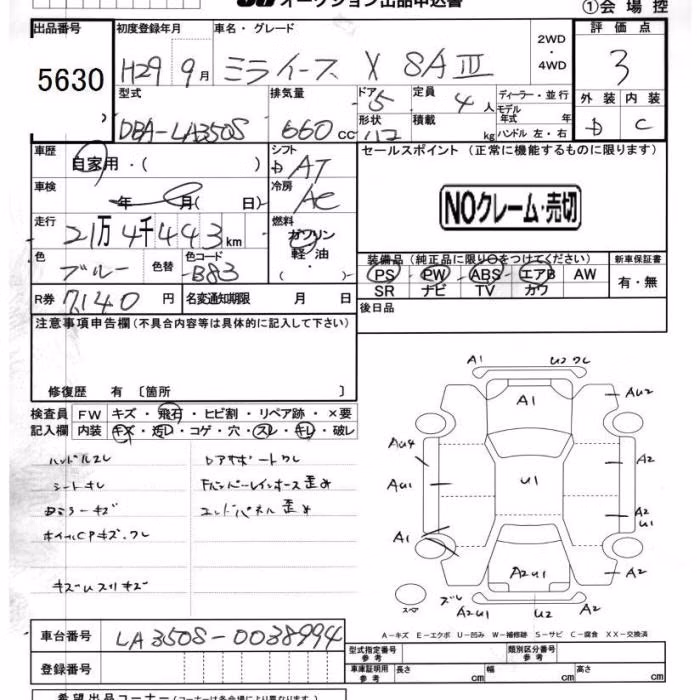 オークション出品申込書
①会場控
出品番号
5630
初度登録年月
H29 9月
車名・グレード
ミライース X SAⅢ
2WD
・
4WD
評価点
3
外装 内装
D C
型式
DBA-LA350S
排気量
660 cc
ドア 5
形状
定員 4人
積載 kg
ディーラー・並行
モデル
年式 年
ハンドル 左・右
車歴
自家用・( )
シフト
AT
車検
年 月( 日)
冷房
AC
走行
21万 4千 443 km
燃料
ガソリン
軽油
・( )
色
ブルー
色替
色コード
B83
R券
7140 円
名変通知期限 月 日
セールスポイント (正常に機能するものに限ります)
NOクレーム・売切
装備品(純正品に限り○をつけてください)
新車保証書
PS PW ABS エアB AW
SR ナビ TV カワ
有・無
後日品
注意事項申告欄(不具合内容等は具体的に記入して下さい)
修復歴 有 〔箇所 〕
検査員
記入欄
FW キズ・飛石・ヒビ割・リペア跡・×要
内装 キズ・汚レ・コゲ・穴・スレ・キレ・破レ
ハンドルスレ
シートキレ
ホイールCPキズ・ワレ
キズムスリキズ
エンドパネル歪み
A1
U2ワレ
A1
AU2
AU4
A2
AU1
U1
A2
U1
A1
A2U1
A2
スペア
ズレ
A2U1
U2
A2
A-キズ E-エクボ U-凹み W-補修跡 S-サビ C-腐食 XX-交換済
車台番号
LA350S-0038994
登録番号
型式指定番号
参考
類別区分番号
参考
車庫証明用
参考
長さ cm
幅 cm
高さ cm
希望出品コーナー(コーナーは各会場により異なります)